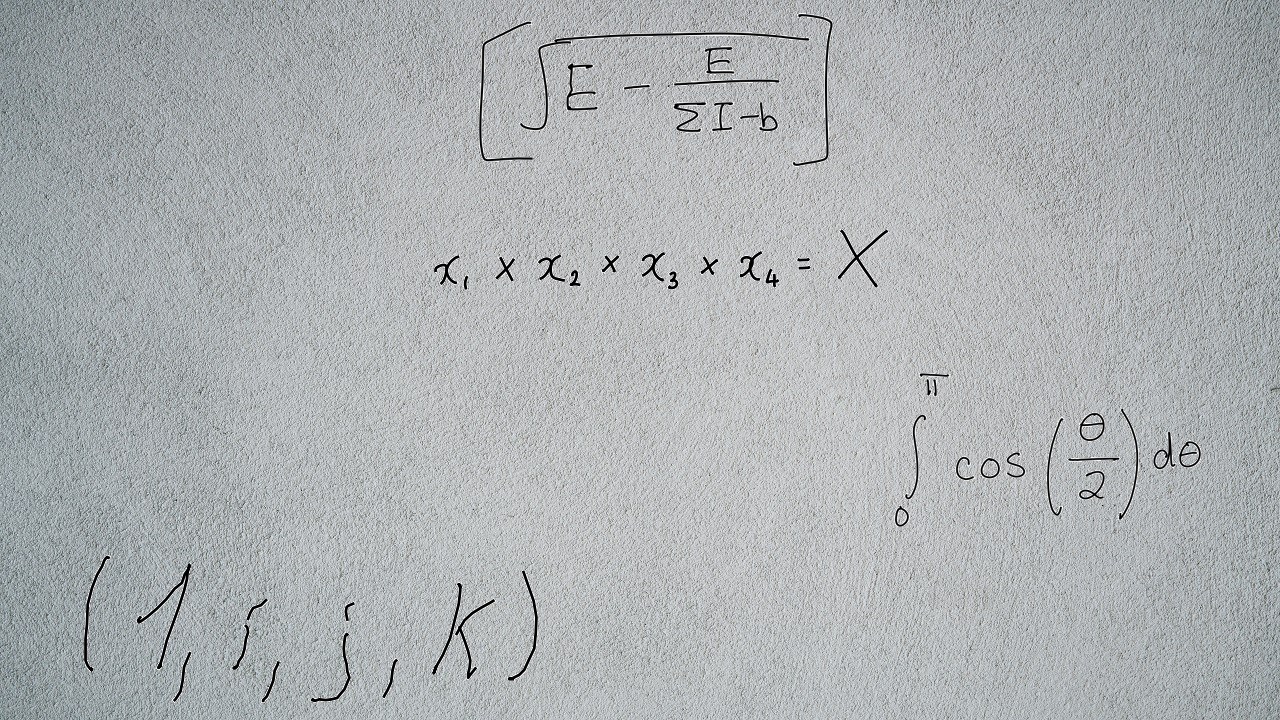 [∫E - E/(ΣI-b)]
x₁ × x₂ × x₃ × x₄ = X
∫₀^π cos(θ/2) dθ
(1, i, j, k)